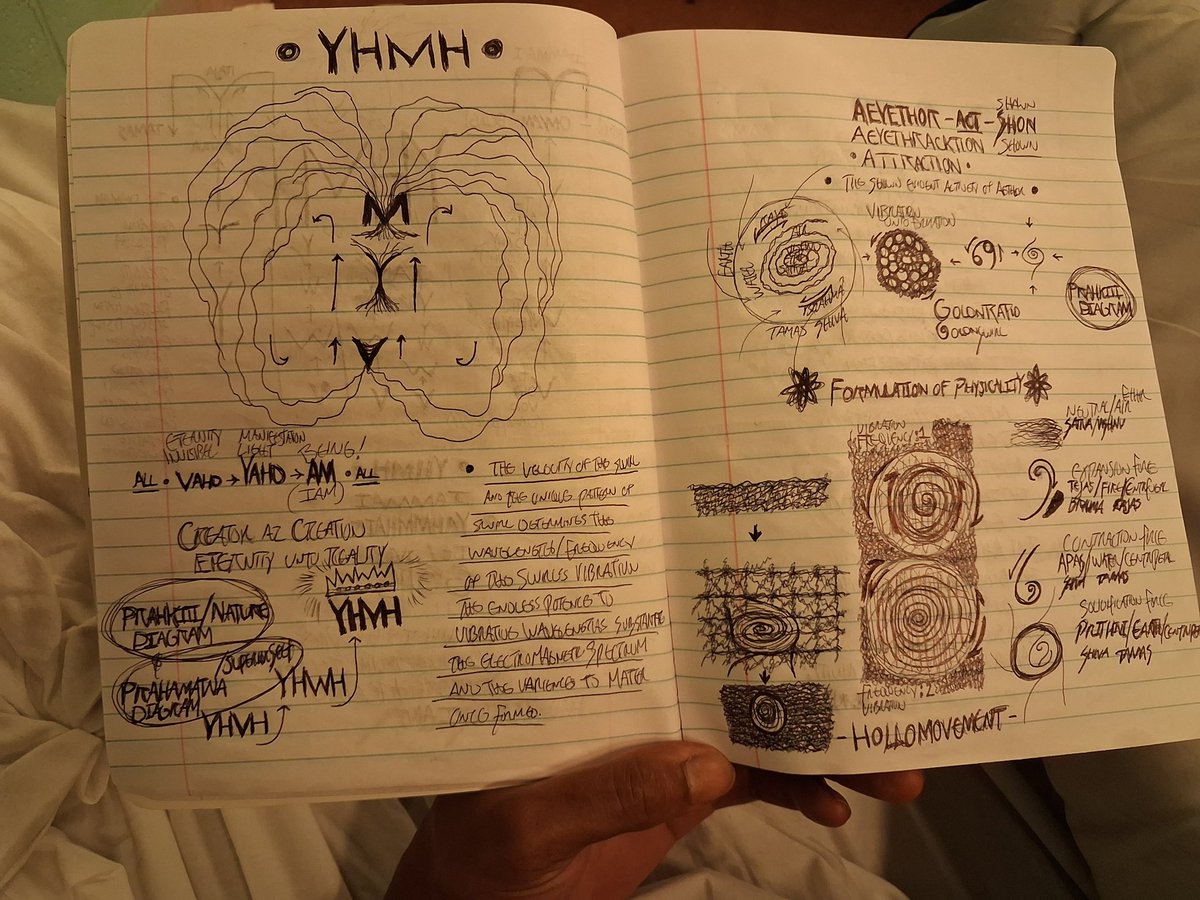 • YHMH •
M
Y
V
ETERNITY MANIFESTATION
INVISIBEL LIGHT BEING!
ALL • VAHD → YAHD → AM • ALL
(IAM)
CREATOR AZ CREATION
ETERNITY UNTO REALITY
/NATURE
DIAGRAM
YHMH
/SUPERIMPOSED
DIAGRAM
YHVH
YHWH
• THE VELOCITY OF THE SWIRL
AND THE UNIQUE PATTERN OF
SWIRL DETERMINES THE
WAVELENGTH/FREQUENCY
OF THE SWIRLS VIBRATION
THE ENDLESS POTENCE TO
VIBRATIVE WAVELENGTHS SUBSTANTIATE
THE ELECTROMAGNETIC SPECTRUM
AND THE VARIENCES TO MATTER
ONCE FORMED.
SHAWN
AEYETHOR - ACT - SHON
SHOWN
AEYETHRACKTION
• ATTRACTION •
• THE SHOWN EVIDENT ACTIVITY OF AETHER •
VIBRATION
UNTO FORMATION
AIR
EARTH
WATER
TAMAS SHIVA
GOLDNRATIO
GOLDNSWIRL
DIAGRAM
FORMULATION OF PHYSICALITY
VIBRATION
FREQUENCY: 1
ETHER
NEUTRAL/AIR
SATVA/VISHNU
EXPANSION FORCE
TEJAS/FIRE/CENTRIFUGAL
BRAHMA RAJAS
CONTRACTION FORCE
APAS/WATER/CENTRIPETAL
SHIVA TAMAS
SOLIDIFICATION FORCE
PRITHIVI/EARTH/CENTRIPETAL
SHIVA TAMAS
FREQUENCY: 2
VIBRATION
- HOLLOMOVEMENT -